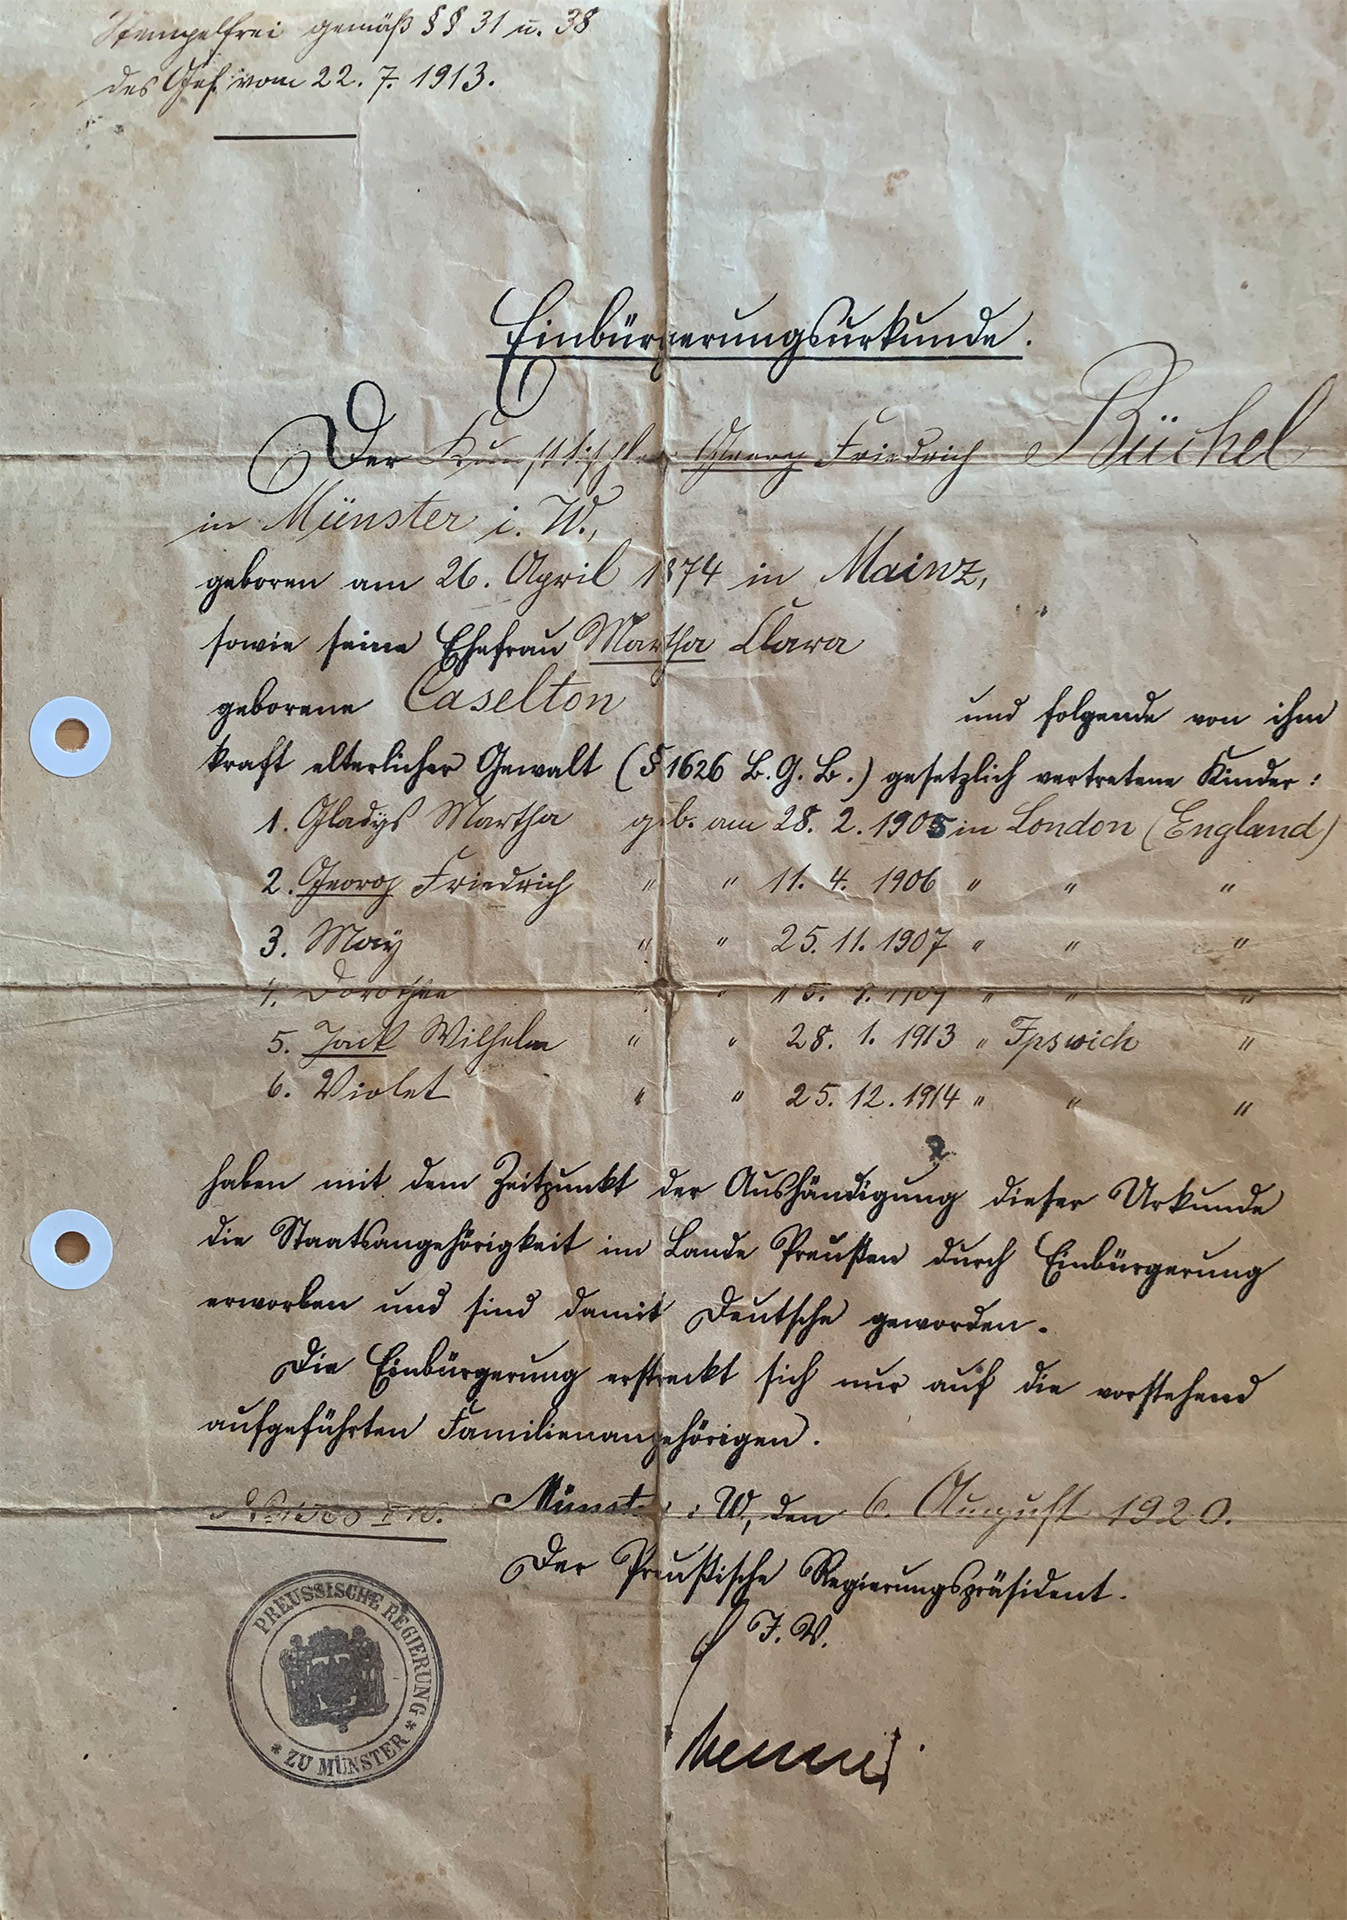 Stempelfrei gemäß §§ 31 u. 38
des Ges. vom 22. 7. 1913.
Einbürgerungsurkunde.
Der Kunsttischler Georg Friedrich Büchel
in Münster i. W.,
geboren am 26. April 1874 in Mainz,
sowie seine Ehefrau Martha Clara
geborene Caselton und folgende von ihm
kraft elterlicher Gewalt (§ 1626 B. G. B.) gesetzlich vertretene Kinder:
1. Gladys Martha geb. am 28. 2. 1905 in London (England)
2. Georg Friedrich " " 11. 4. 1906 " " "
3. May " " 25. 11. 1907 " " "
4. Dorothea " " " " "
5. Jack Wilhelm " " 28. 1. 1913 " Ipswich "
6. Violet " " 25. 12. 1914 " " "
haben mit dem Zeitpunkt der Aushändigung dieser Urkunde
die Staatsangehörigkeit im Lande Preußen durch Einbürgerung
erworben und sind damit Deutsche geworden.
Die Einbürgerung erstreckt sich nur auf die vorstehend
aufgeführten Familienangehörigen.
Münster i. W, den 6. August 1920.
Der Preußische Regierungspräsident.
J. V.
PREUSSISCHE REGIERUNG
* ZU MÜNSTER *